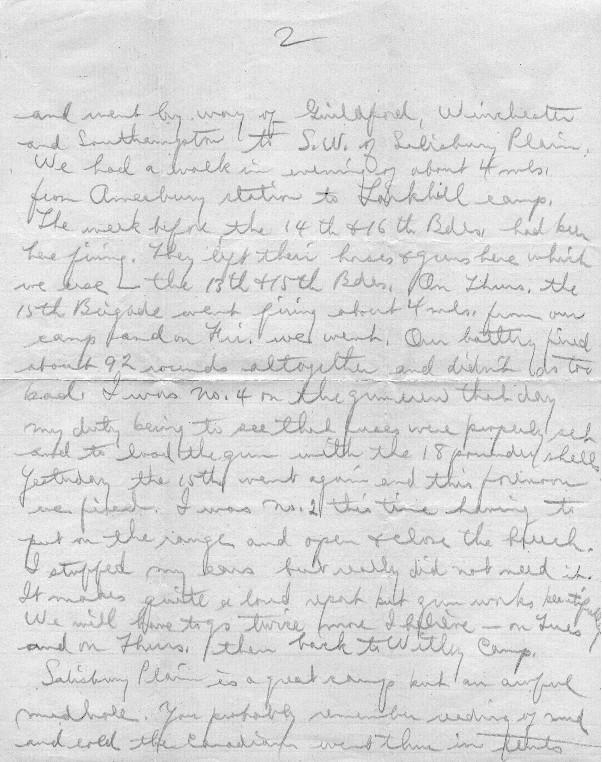 2
and went by way of Guildford, Winchester
and Southampton to S.W. of Salisbury Plain.
We had a walk in evening of about 4 mls.
from Amesbury station to Larkhill camp.
The week before the 14th & 16th Bdes. had been
here firing. They left their horses & guns here which
we use — the 13th & 15th Bdes. On Thurs. the
15th Brigade went firing about 4 mls. from our
camp and on Fri. we went. Our battery fired
about 92 rounds altogether and didn't do too
bad. I was No. 4 on the gun crew that day
my duty being to see that fuses were properly set
and to load the gun with the 18 pounder shells
Yesterday the 15th went again and this forenoon
we fired. I was No. 2 this time having to
put on the range and open & close the breech.
I stuffed my ears but really did not need it.
It makes quite a loud report but gun works beautifully
We will have to go twice more I believe — on Tues
and on Thurs. then back to Witley Camp.
Salisbury Plain is a great camp but an awful
mudhole. You probably remember reading of mud
and cold the Canadians went thru in tents